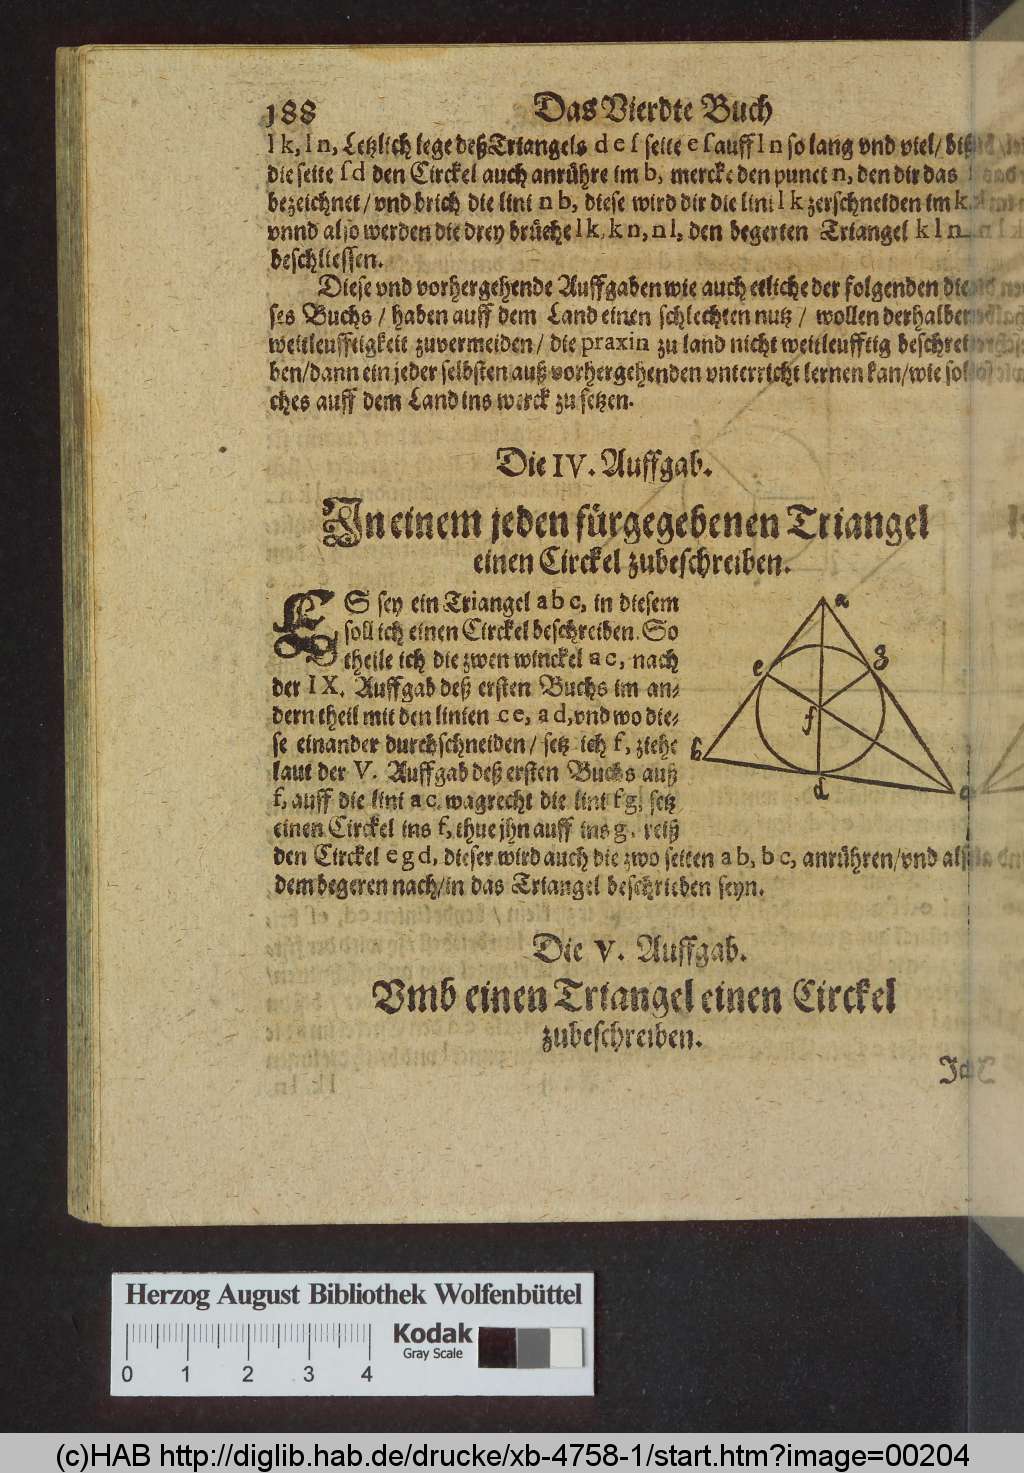 188 Das Vierdte Buch
lk, ln, Letzlich lege deß Triangels def seite ef auff ln so lang vnd viel/ biß
die seite fd den Circkel auch anrühre im b, mercke den punct n, den dir das
bezeichnet/ vnd brich die lini nb, diese wird dir die lini lk zerschneiden im k.
vnnd also werden die drey brüche lk, kn, nl, den begerten Triangel kln
beschliessen.
Diese vnd vorhergehende Auffgaben wie auch etliche der folgenden die
ses Buchs / haben auff dem Land einen schlechten nutz / wollen derhalben
weitleufftigkeit zuvermeiden/ die praxin zu land nicht weitleufftig beschrei
ben/dann ein jeder selbsten auß vorhergehenden vnterricht lernen kan/wie sol
ches auff dem Land ins werck zu setzen.
Die IV. Auffgab.
In einem jeden fürgegebenen Triangel
einen Circkel zubeschreiben.
ES sey ein Triangel abc, in diesem
soll ich einen Circkel beschreiben. So
theile ich die zwen winckel ac, nach
der IX. Auffgab deß ersten Buchs im an-
dern theil mit den linien ce, ad, vnd wo die-
se einander durchschneiden/ setz ich f, ziehe
laut der V. Auffgab deß ersten Buchs auß
f, auff die lini ac wagrecht die lini fg, setz
einen Circkel ins f, thue jhn auff ins g, reiß
den Circkel egd, dieser wird auch die zwo seiten ab, bc, anrühren/vnd also
dem begeren nach/in das Triangel beschrieben seyn.
a
e g
f
b
d c
Die V. Auffgab.
Vmb einen Triangel einen Circkel
zubeschreiben.
Jch
Herzog August Bibliothek Wolfenbüttel
0 1 2 3 4
Kodak
Gray Scale
(c)HAB http://diglib.hab.de/drucke/xb-4758-1/start.htm?image=00204